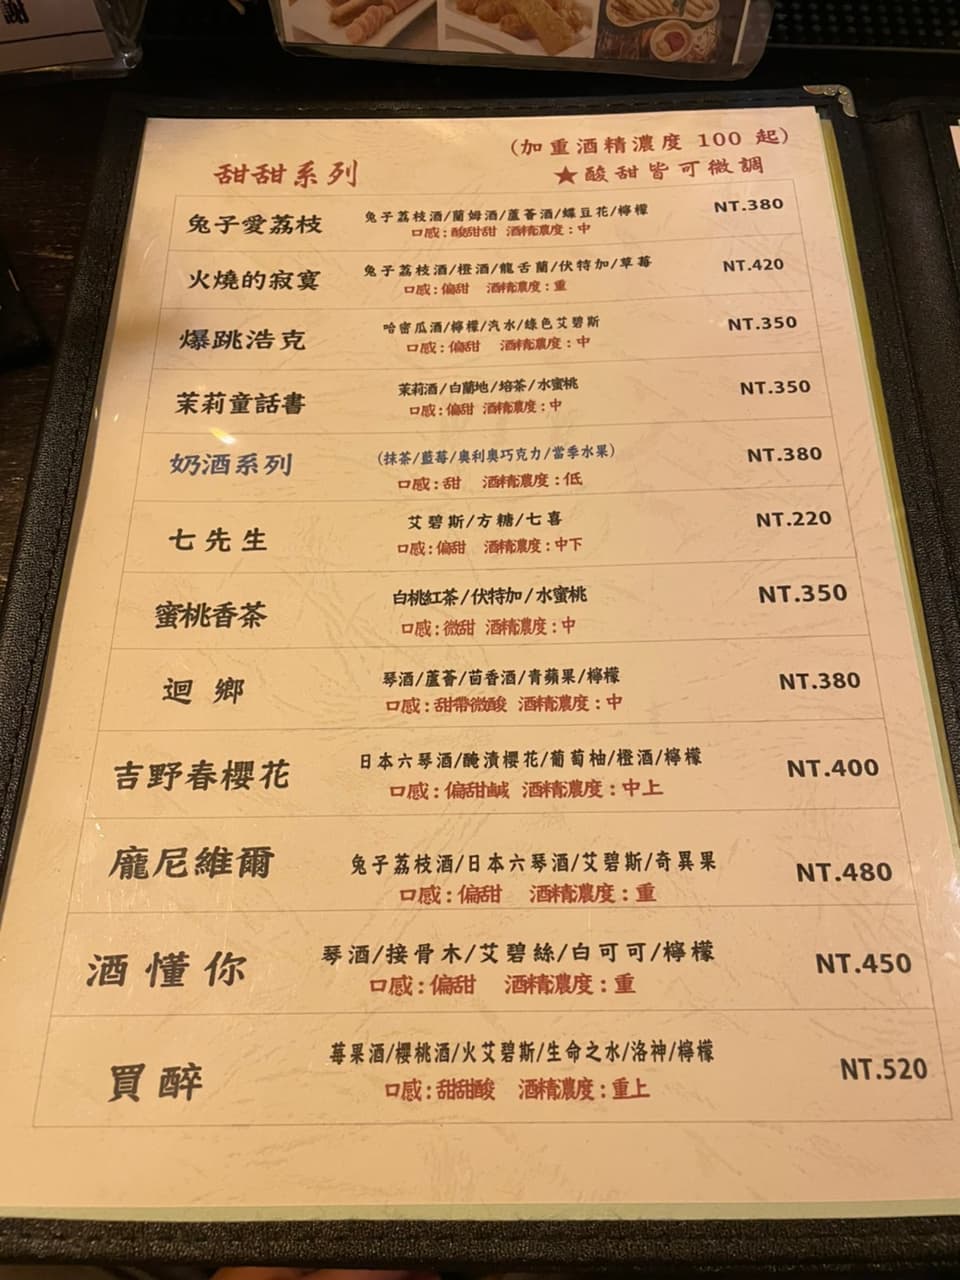 (加重酒精濃度 100 起)
甜甜系列
★酸甜皆可微調
兔子愛荔枝
兔子荔枝酒/蘭姆酒/蘆薈酒/蝶豆花/檸檬
NT.380
口感:酸甜甜 酒精濃度:中
火燒的寂寞
兔子荔枝酒/橙酒/龍舌蘭/伏特加/草莓
NT.420
口感:偏甜 酒精濃度:重
爆跳浩克
哈密瓜酒/檸檬/汽水/綠色艾碧斯
NT.350
口感:偏甜 酒精濃度:中
茉莉童話書
茉莉酒/白蘭地/焙茶/水蜜桃
NT.350
口感:偏甜 酒精濃度:中
奶酒系列
(抹茶/藍莓/奧利奧巧克力/當季水果)
NT.380
口感:甜 酒精濃度:低
七先生
艾碧斯/方糖/七喜
NT.220
口感:偏甜 酒精濃度:中下
蜜桃香茶
白桃紅茶/伏特加/水蜜桃
NT.350
口感:微甜 酒精濃度:中
迴鄉
琴酒/蘆薈/茴香酒/青蘋果/檸檬
NT.380
口感:甜帶微酸 酒精濃度:中
吉野春櫻花
日本六琴酒/醃漬櫻花/葡萄柚/橙酒/檸檬
NT.400
口感:偏甜鹹 酒精濃度:中上
龐尼維爾
兔子荔枝酒/日本六琴酒/艾碧斯/奇異果
NT.480
口感:偏甜 酒精濃度:重
酒懂你
琴酒/接骨木/艾碧絲/白可可/檸檬
NT.450
口感:偏甜 酒精濃度:重
買醉
莓果酒/櫻桃酒/火艾碧斯/生命之水/洛神/檸檬
NT.520
口感:甜甜酸 酒精濃度:重上